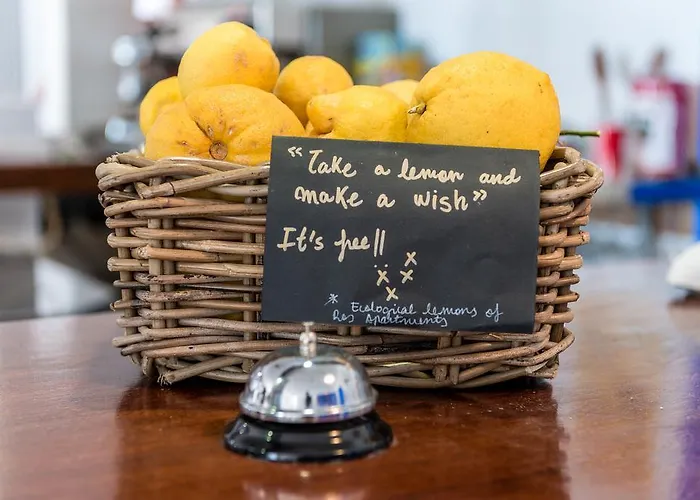 “Take a lemon and
make a wish”
It's free!!
x x
x
* Ecological lemons of
Apartments